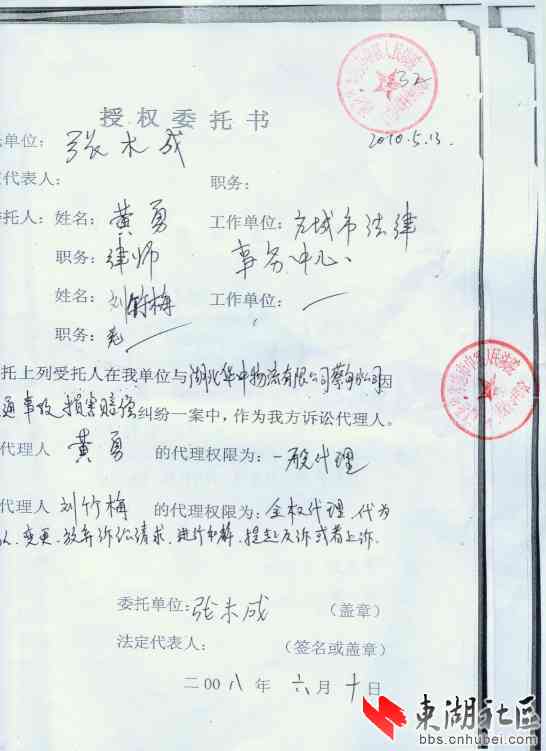 授权委托书
托单位: 张木成
2010.5.13.
代表人: 职务:
委托人: 姓名: 黄勇 工作单位: 法律
职务: 律师 事务中心、
姓名: 刘竹梅 工作单位:
职务:
托上列受托人在我单位与湖北华中物流有限公司蔡甸公司因
通事故损害赔偿纠纷一案中,作为我方诉讼代理人。
代理人 黄勇 的代理权限为: 一般代理
代理人 刘竹梅 的代理权限为: 全权代理、代为
认、变更、放弃诉讼请求、进行和解、提起反诉或者上诉。
委托单位: 张木成 (盖章)
法定代表人: (签名或盖章)
二00八年 六月十日
東湖社区
bbs.cnhubei.com